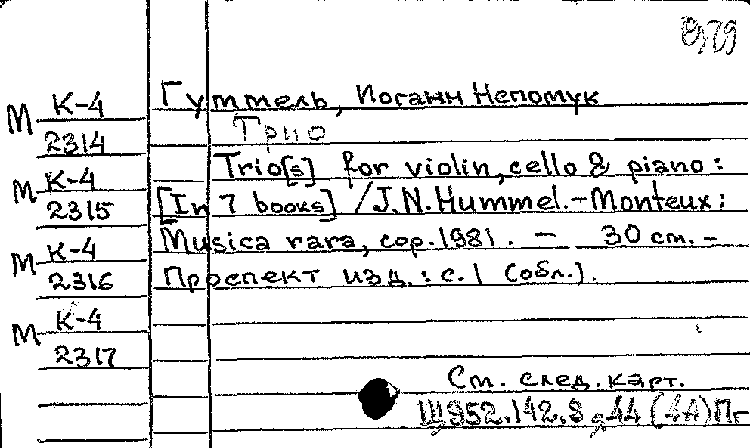 М К-4 2314
М К-4 2315
М К-4 2316
М К-4 2317
Гуммель, Иоганн Непомук
Трио
Trio[s] for violin, cello & piano:
[In 7 books] / J.N. Hummel. - Monteux:
Musica rara, cop. 1981. - 30 cm. -
Проспект изд.: с. 1 (обл.).
См. след. карт.
Щ952.142.8 я44 (4А) Пг